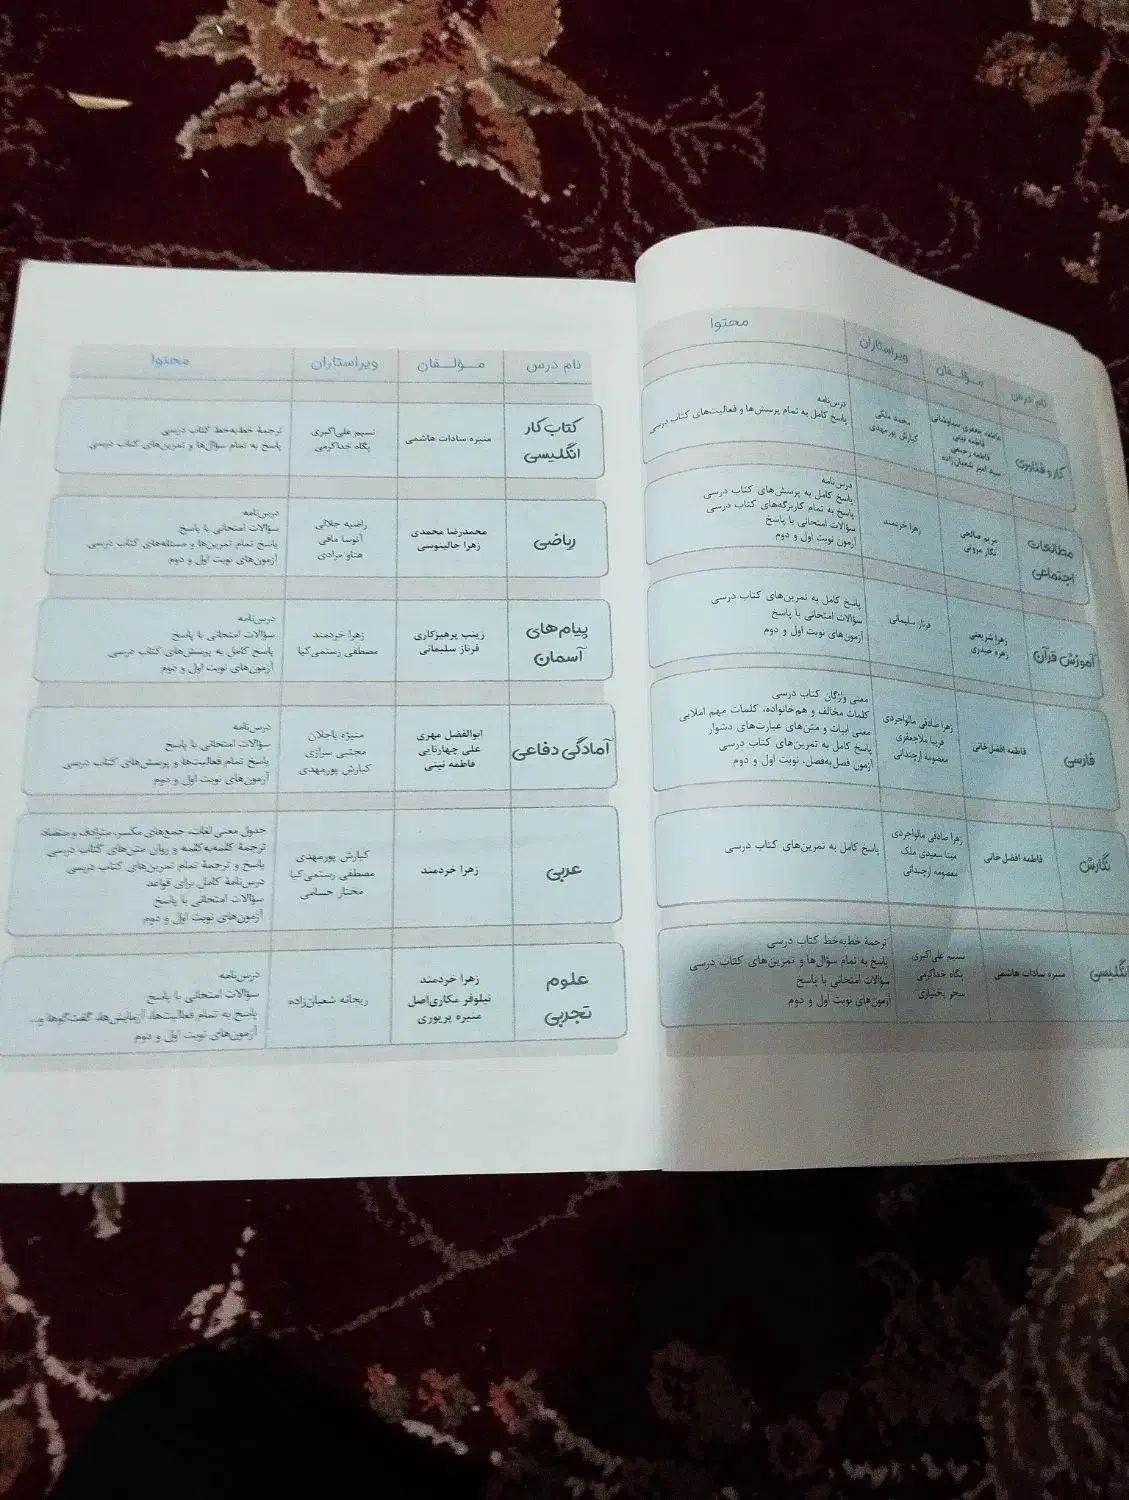 نام درس	مؤلفان	ویراستاران	محتوا
کار و فناوری
فاطمه جعفری سیاوشانی
فاطمه نیتی
فاطمه رحیمی
سید امیر شعبان‌زاده
محمد ملکی
کیارش پورمهدی
درس‌نامه
پاسخ کامل به تمام پرسش‌ها و فعالیت‌های کتاب درسی
مطالعات
اجتماعی
مریم صالحی
نگار مرونی
زهرا خردمند
درس‌نامه
پاسخ کامل به پرسش‌های کتاب درسی
پاسخ به تمام کاربرگه‌های کتاب درسی
سؤالات امتحانی با پاسخ
آزمون نوبت اول و دوم
آموزش قرآن
زهرا شریعتی
زهره حیدری
فرناز سلیمانی
پاسخ کامل به تمرین‌های کتاب درسی
سؤالات امتحانی با پاسخ
آزمون‌های نوبت اول و دوم
فارسی
فاطمه افضل‌خانی
زهرا صادقی مالواجردی
فریبا ملاجعفری
معصومه ارچندانی
معنی واژگان کتاب درسی
کلمات مخالف و هم‌خانواده، کلمات مهم املایی
معنی ابیات و متن‌های عبارت‌های دشوار
پاسخ کامل به تمرین‌های کتاب درسی
آزمون فصل‌به‌فصل، نوبت اول و دوم
نگارش
فاطمه افضل‌خانی
زهرا صادقی مالواجردی
مینا سعیدی ملک
معصومه ارچندانی
پاسخ کامل به تمرین‌های کتاب درسی
انگلیسی
منیره سادات هاشمی
نسیم علی‌اکبری
پگاه خداکرمی
سحر بختیاری
ترجمهٔ خط‌به‌خط کتاب درسی
پاسخ به تمام سؤال‌ها و تمرین‌های کتاب درسی
سؤالات امتحانی با پاسخ
آزمون‌های نوبت اول و دوم
نام درس	مؤلفان	ویراستاران	محتوا
کتاب کار
انگلیسی
منیره سادات هاشمی
نسیم علی‌اکبری
پگاه خداکرمی
ترجمهٔ خط‌به‌خط کتاب درسی
پاسخ به تمام سؤال‌ها و تمرین‌های کتاب درسی
ریاضی
محمدرضا محمدی
زهرا جالینوسی
راضیه جلالی
آتوسا مافی
هناو مرادی
درس‌نامه
سؤالات امتحانی با پاسخ
پاسخ تمام تمرین‌ها و مسئله‌های کتاب درسی
آزمون‌های نوبت اول و دوم
پیام‌های
آسمان
زینب پرهیزکاری
فرناز سلیمانی
زهرا خردمند
مصطفی رستمی‌کیا
درس‌نامه
سؤالات امتحانی با پاسخ
پاسخ کامل به پرسش‌های کتاب درسی
آزمون‌های نوبت اول و دوم
آمادگی دفاعی
ابوالفضل مهری
علی چهارتایی
فاطمه نیتی
منیژه باجلان
مجتبی سرازی
کیارش پورمهدی
درس‌نامه
سؤالات امتحانی با پاسخ
پاسخ تمام فعالیت‌ها و پرسش‌های کتاب درسی
آزمون‌های نوبت اول و دوم
عربی
زهرا خردمند
کیارش پورمهدی
مصطفی رستمی‌کیا
مختار حسامی
جدول معنی لغات، جمع‌های مکسر، مترادف و متضاد
ترجمهٔ کلمه‌به‌کلمه و روان متن‌های کتاب درسی
پاسخ و ترجمهٔ تمام تمرین‌های کتاب درسی
درس‌نامهٔ کامل برای قواعد
سؤالات امتحانی با پاسخ
آزمون‌های نوبت اول و دوم
علوم
تجربی
زهرا خردمند
نیلوفر مکاری‌اصل
منیره پرپوری
ریحانه شعبان‌زاده
درس‌نامه
سؤالات امتحانی با پاسخ
پاسخ به تمام فعالیت‌ها، آزمایش‌ها، گفت‌گوها و...
آزمون‌های نوبت اول و دوم